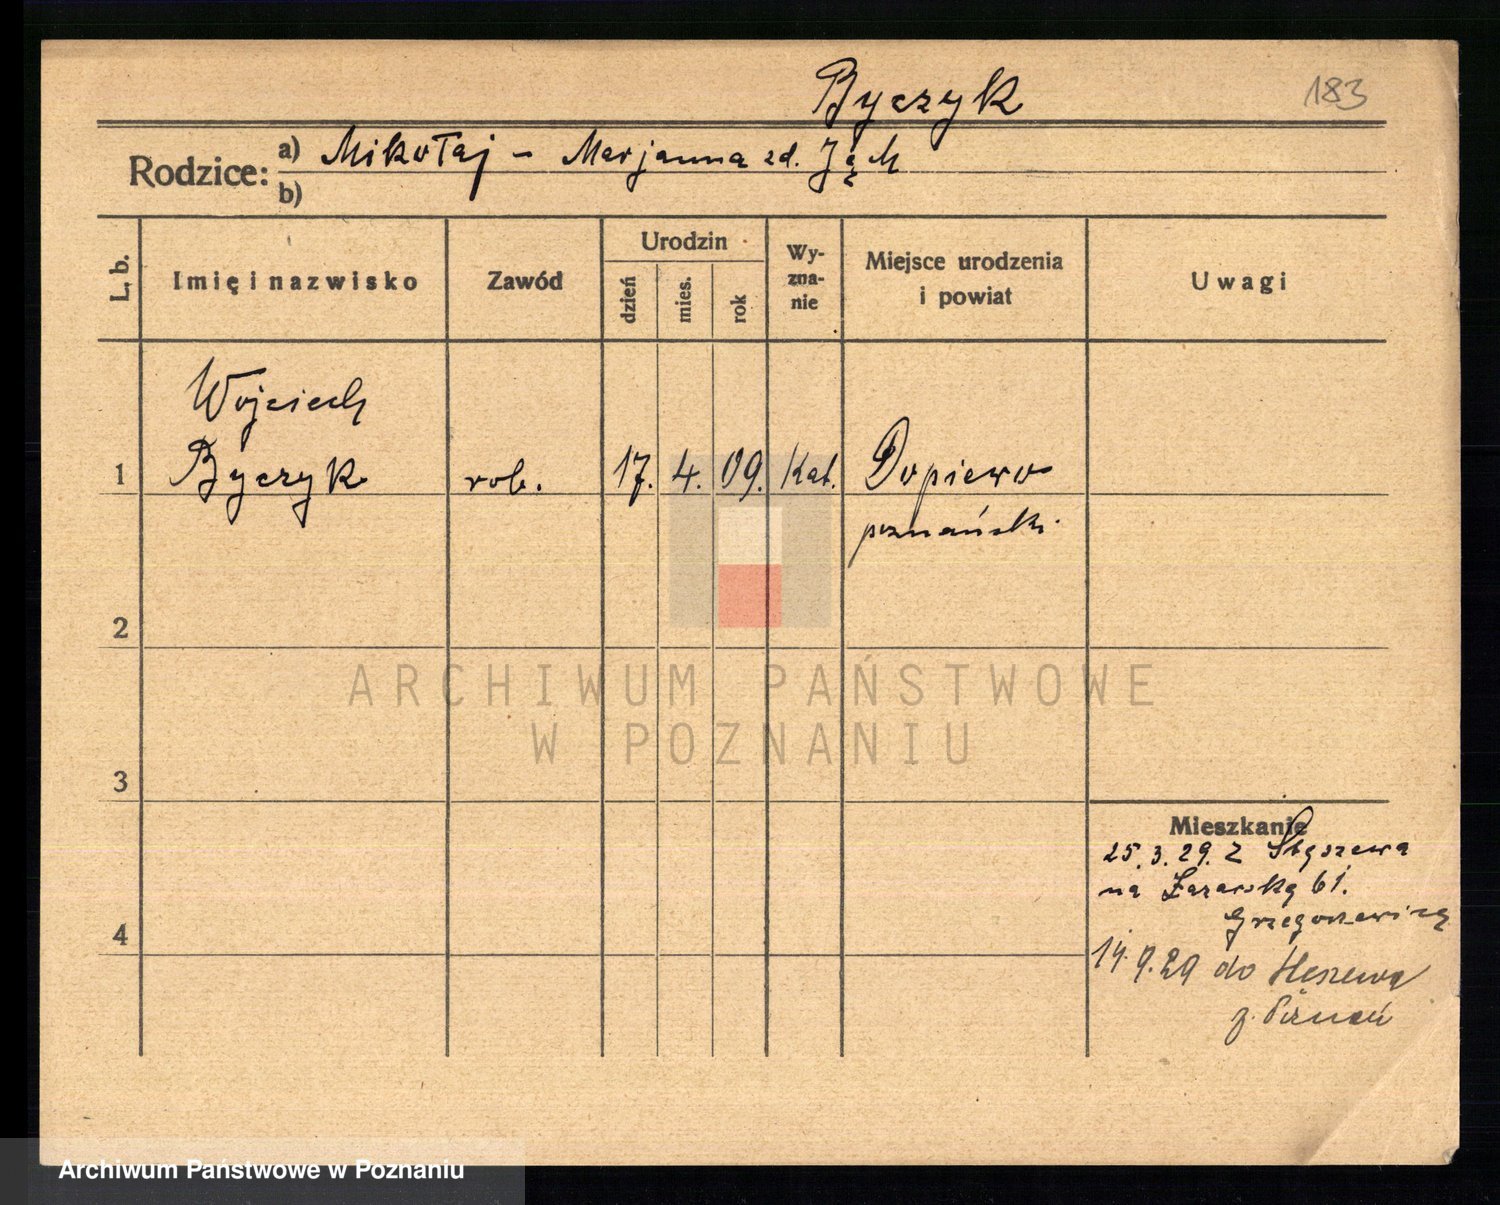 Byczyk
183
Rodzice:
a) Mikołaj - Marjanna zd. Jąch
b)
L. b.
Imię i nazwisko
Zawód
Urodzin
dzień
mies.
rok
Wy-
zna-
nie
Miejsce urodzenia
i powiat
Uwagi
Wojciech
1 Byczyk rob. 17. 4. 09. Kat. Dopiewo
poznański
2
3
4
Mieszkanie
25.3.29. z
na Łazarską 61.
14.9.29 do
p. Poznań
ARCHIWUM PAŃSTWOWE
W POZNANIU
Archiwum Państwowe w Poznaniu